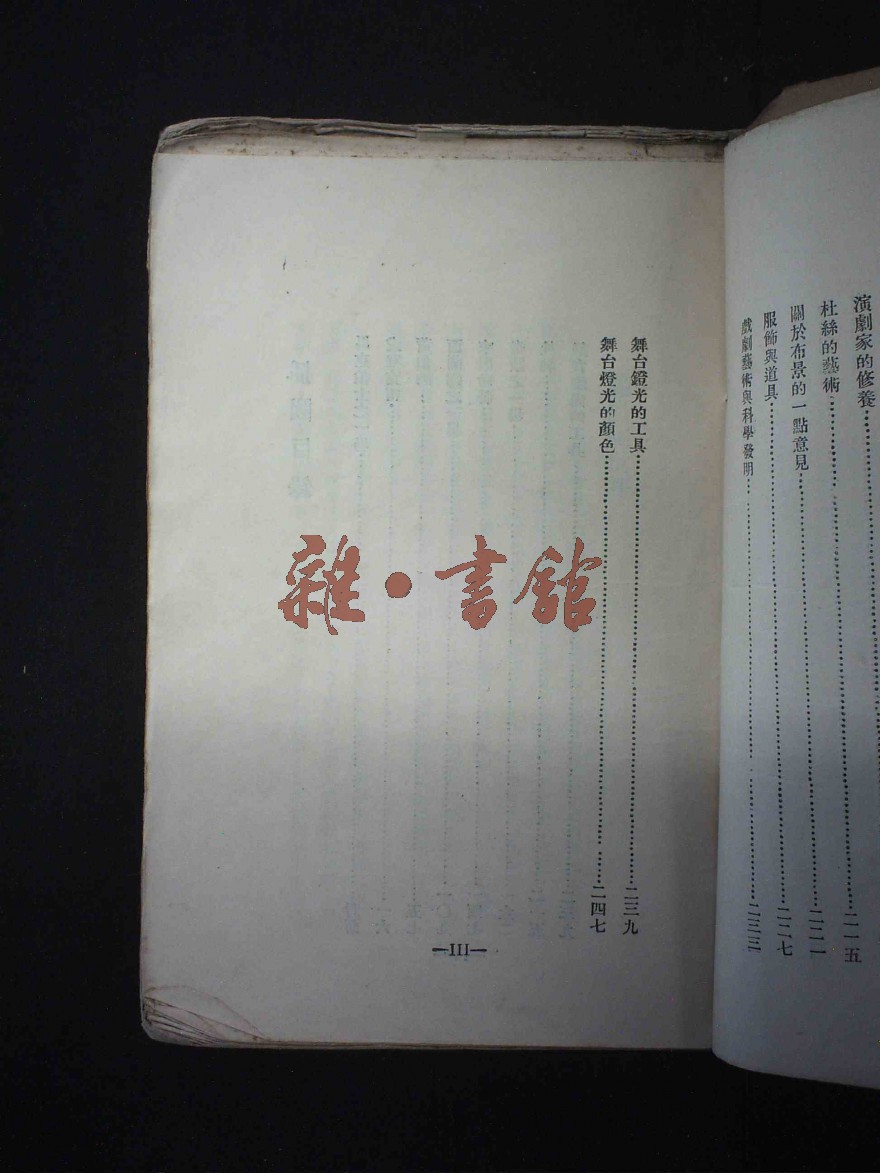 演劇家的修養………………
杜絲的藝術………………二一五
關於布景的一點意見………………二二一
服飾與道具………………二二七
戲劇藝術與科學發明………………二三三
舞台鐙光的工具………………二三九
舞台燈光的顏色………………二四七
—III—
雜·書館